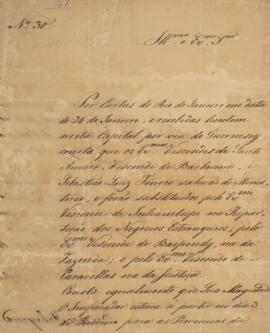 Nº 30
Illmo e Exmo Snr
Por Cartas do Rio de Janeiro em data
de 26 de Janeiro, e recebidas hontem
nesta Capital por via de Guernesey
consta que os Exmos Viscondes de Santo
Amaro, Visconde de Barbacena e
Sebastião Luiz Tinoco sahirão do Minis-
terio, e forão substituidos pelo Exmo
Visconde de Inhambupe na Repar-
tição dos Negocios Estrangeiros, pelo
Exmo Visconde de Baependy, na da
Fazenda; e pelo Exmo Visconde de
Caravellas na da Justiça.
Consta igualmente que Sua Magestade
O Imperador estava a partir no dia 3
de para as Provincias da